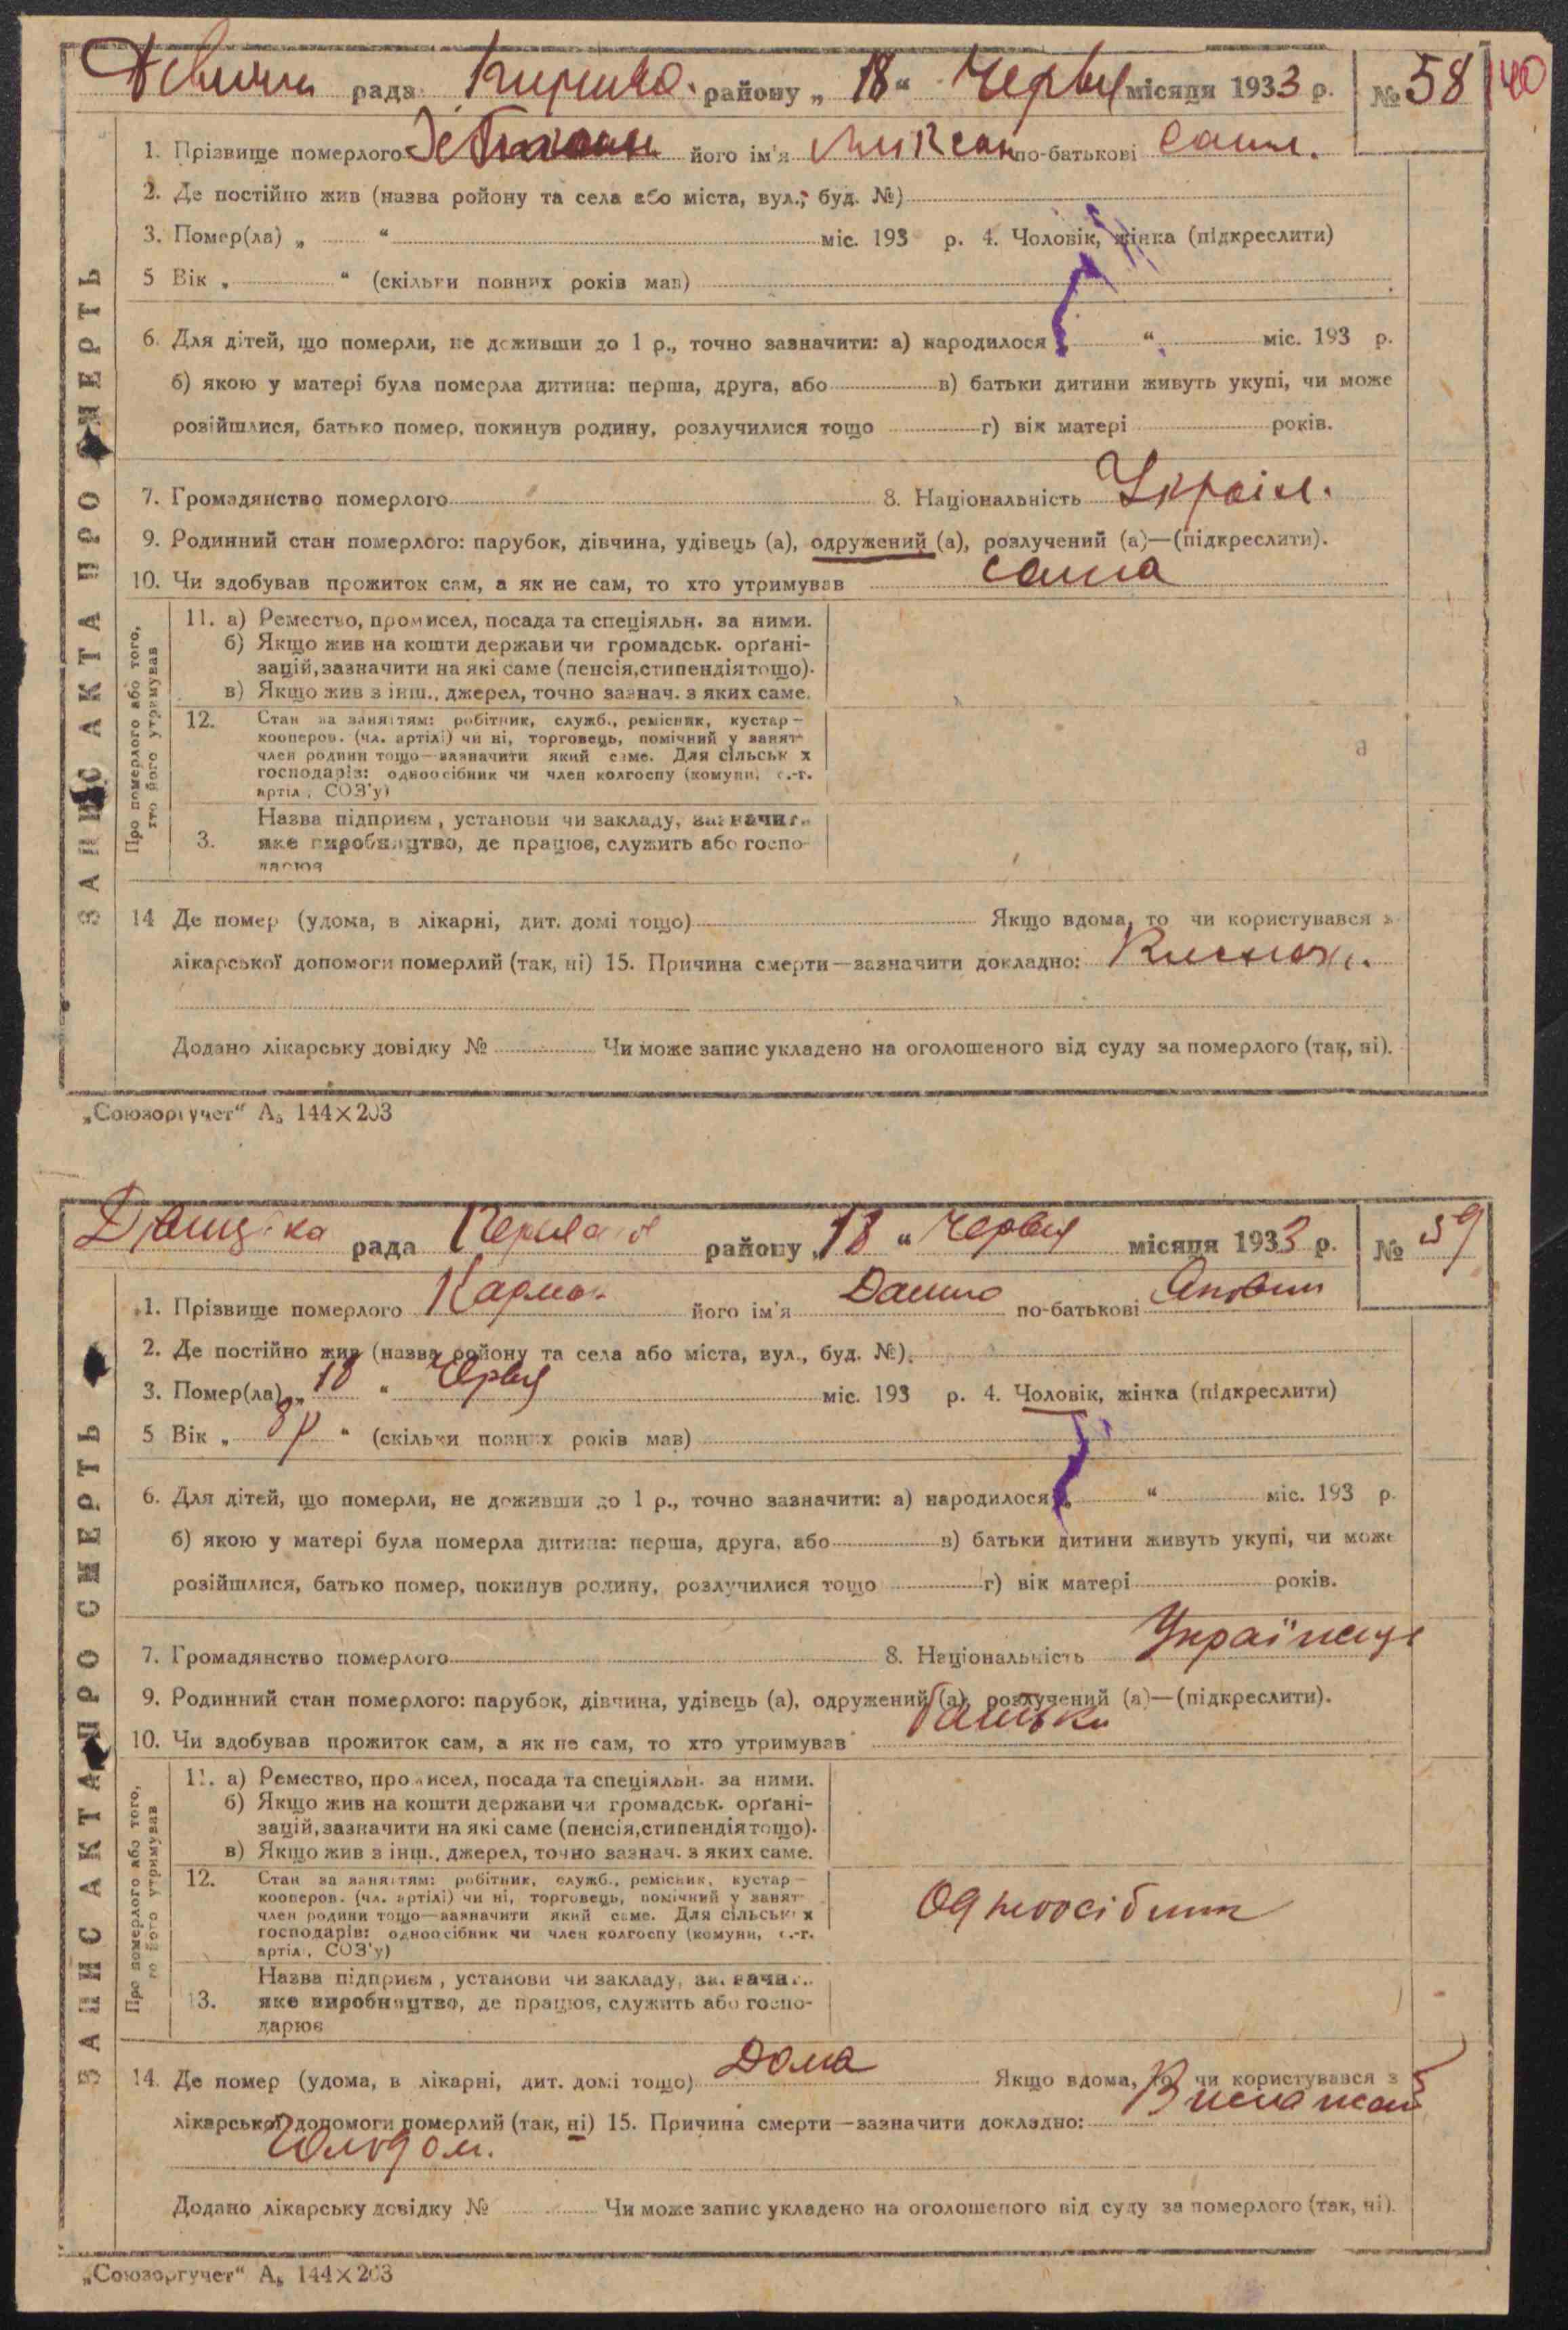 рада району „ 18 “ Червня місяця 1933 р. № 58 40
1. Прізвище померлого його ім'я по-батькові
2. Де постійно жив (назва ройону та села або міста, вул., буд. №)
3. Помер(ла) „ “ міс. 193 р. 4. Чоловік, жінка (підкреслити)
5 Вік „ “ (скільки повних років мав)
6. Для дітей, що померли, не доживши до 1 р., точно зазначити: а) народилося „ “ міс. 193 р.
б) якою у матері була померла дитина: перша, друга, або в) батьки дитини живуть укупі, чи може
розійшлися, батько помер, покинув родину, розлучилися тощо г) вік матері років.
7. Громадянство померлого 8. Національність Україн.
9. Родинний стан померлого: парубок, дівчина, удівець (а), одружений (а), розлучений (а)—(підкреслити).
10. Чи здобував прожиток сам, а як не сам, то хто утримував сама
ЗАПИС АКТА ПРО СМЕРТЬ
Про померлого або того, хто його утримував
11. а) Ремество, промисел, посада та спеціяльн. за ними.
б) Якщо жив на кошти держави чи громадськ. орґані-
зацій, зазначити на які саме (пенсія, стипендія тощо).
в) Якщо жив з інш., джерел, точно зазнач. з яких саме.
12. Стан за заняттям: робітник, служб., ремісник, кустар—
кооперов. (чл. артілі) чи ні, торговець, помічний у занят
член родини тощо—зазначити який саме. Для сільськ х
господарів: одноосібник чи член колгоспу (комуни, с.-г.
артіл , СОЗ'у)
Назва підприєм , установи чи закладу, зазначит
3. яке виробництво, де працює, служить або госпо-
дарює
14 Де помер (удома, в лікарні, дит. домі тощо) Якщо вдома, то чи користувався з
лікарської допомоги померлий (так, ні) 15. Причина смерти—зазначити докладно:
Додано лікарську довідку № Чи може запис укладено на оголошеного від суду за померлого (так, ні).
„Союзоргучет“ А₅ 144×203
рада району „ 18 “ Червня місяця 1933 р. № 59
1. Прізвище померлого його ім'я Данило по-батькові
2. Де постійно жив (назва ройону та села або міста, вул., буд. №)
3. Помер(ла) „ 18 “ Червня міс. 193 р. 4. Чоловік, жінка (підкреслити)
5 Вік „ 8 р “ (скільки повних років мав)
6. Для дітей, що померли, не доживши до 1 р., точно зазначити: а) народилося „ “ міс. 193 р.
б) якою у матері була померла дитина: перша, друга, або в) батьки дитини живуть укупі, чи може
розійшлися, батько помер, покинув родину, розлучилися тощо г) вік матері років.
7. Громадянство померлого 8. Національність Українець
9. Родинний стан померлого: парубок, дівчина, удівець (а), одружений (а), розлучений (а)—(підкреслити).
10. Чи здобував прожиток сам, а як не сам, то хто утримував батьки
ЗАПИС АКТА ПРО СМЕРТЬ
Про померлого або того, хто його утримував
11. а) Ремество, промисел, посада та спеціяльн. за ними.
б) Якщо жив на кошти держави чи громадськ. орґані-
зацій, зазначити на які саме (пенсія, стипендія тощо).
в) Якщо жив з інш., джерел, точно зазнач. з яких саме.
12. Стан за заняттям: робітник, служб., ремісник, кустар—
кооперов. (чл. артілі) чи ні, торговець, помічний у занят
член родини тощо—зазначити який саме. Для сільськ х
господарів: одноосібник чи член колгоспу (комуни, с.-г.
артіл , СОЗ'у)
Одноосібник
Назва підприєм , установи чи закладу, зазначит
13. яке виробництво, де працює, служить або госпо-
дарює
14. Де помер (удома, в лікарні, дит. домі тощо) Дома Якщо вдома, то чи користувався з
лікарської допомоги померлий (так, ні) 15. Причина смерти—зазначити докладно:
Голодом.
Додано лікарську довідку № Чи може запис укладено на оголошеного від суду за померлого (так, ні).
„Союзоргучет“ А₅ 144×203